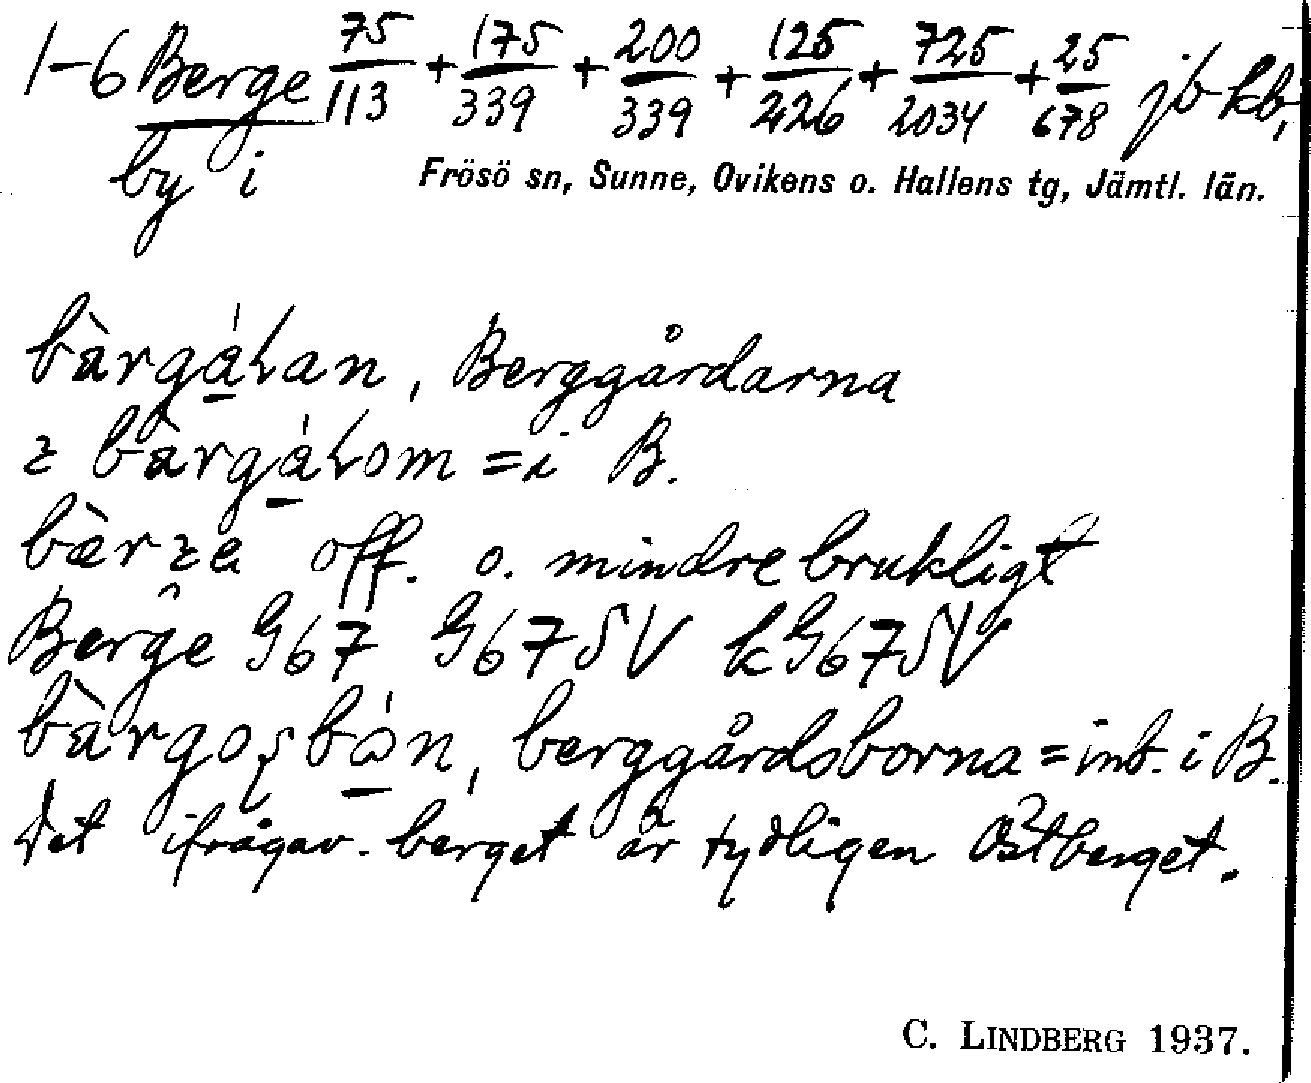 1-6 Berge 75/113 + 175/339 + 200/339 + 125/226 + 725/2034 + 25/678 jb kb,
by i Frösö sn, Sunne, Ovikens o. Hallens tg, Jämtl. län.
Berggårdarna
= i B.
off. o. mindre brukligt
Berge G67 G67SV kG67SV
berggårdsborna = inb. i B.
Det ifrågav. berget är tydligen Östberget.
C. LINDBERG 1937.